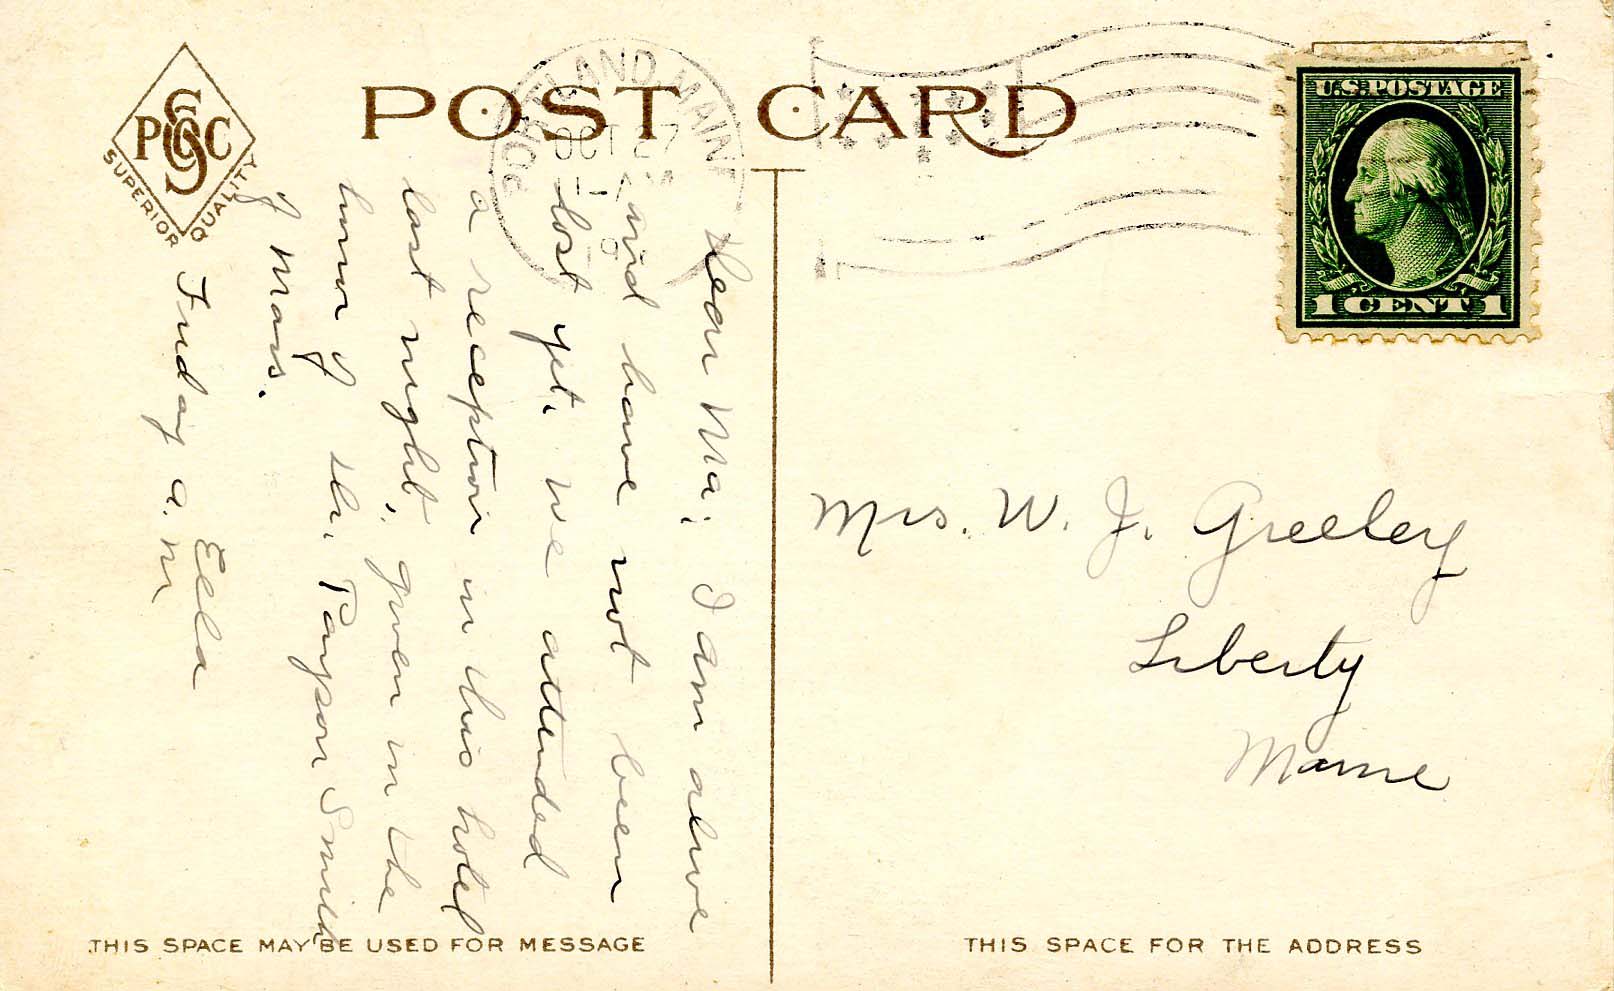 POST CARD
PSGC
SUPERIOR QUALITY
PORTLAND, MAINE
OCT 27
U.S. POSTAGE
1 CENT 1
Dear Ma; I am alive
and have not been
lost yet. We attended
a reception in this hotel
last night, given in the
honor of Payson Smith
of Mass.
Ella
Friday a.m
Mrs. W. J. Greeley
Liberty
Maine
THIS SPACE MAY BE USED FOR MESSAGE
THIS SPACE FOR THE ADDRESS